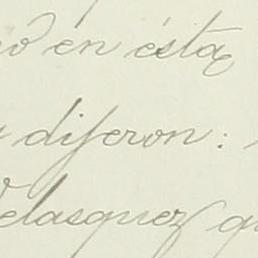 en ésta
dijeron:
Velasquez